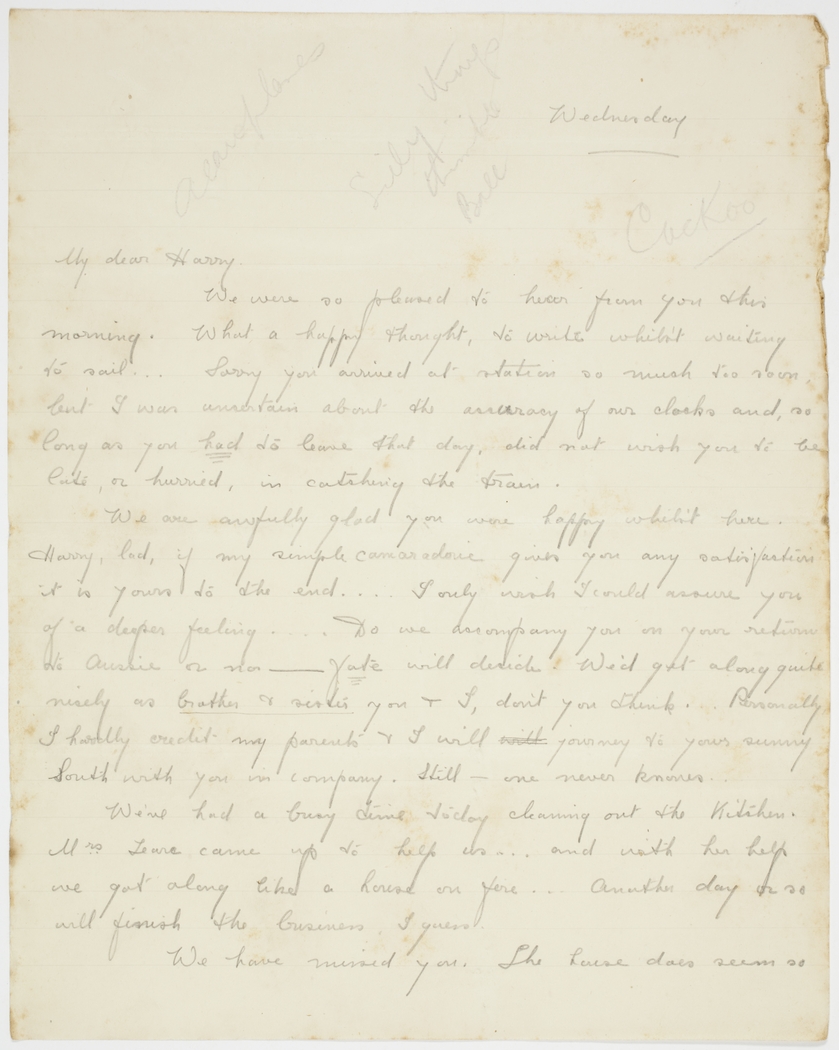 Aearoplanes
Silly things
at the
Ball
Wednesday
Cuckoo
My dear Harry.
We were so pleased to hear from you this
morning. What a happy thought, to write whilst waiting
to sail... Sorry you arrived at station so much too soon,
but I was uncertain about the accuracy of our clocks and, so
long as you had to leave that day, did not wish you to be
late, or hurried, in catching the train.
We are awfully glad you were happy whilst here.
Harry, lad, if my simple camaradorie gives you any satisfaction
it is yours to the end.... I only wish I could assure you
of a deeper feeling..... Do we accompany you on your return
to Aussie or no — Fate will decide. We'd get along quite
nicely as brother & sister you & I, don't you think... Personally
I hardly credit my parents & I will will journey to your sunny
South with you in company. Still — one never knows...
We've had a busy time today cleaning out the Kitchen.
Mrs came up to help us... and with her help
we got along like a house on fire... Another day or so
will finish the business I guess.
We have missed you. The house does seem so